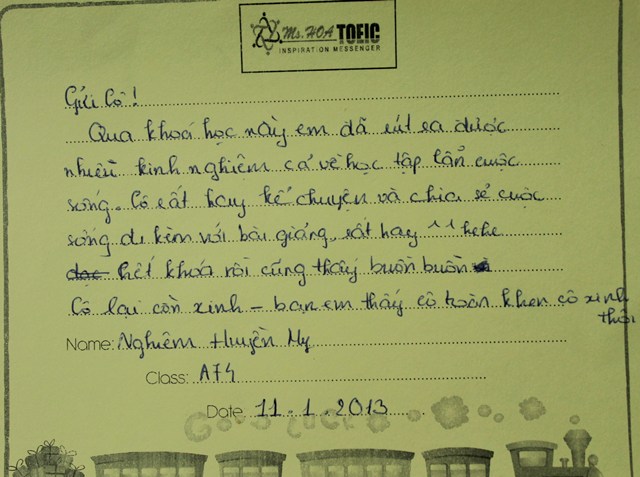 Ms. HOA TOEIC
INSPIRATION MESSENGER
Gửi Cô!
Qua khoá học này em đã rút ra được
nhiều kinh nghiệm cả về học tập lẫn cuộc
sống. Cô rất hay kể chuyện và chia sẻ cuộc
sống đi kèm với bài giảng, rất hay ^^ hehe
hết khoá rồi cũng thấy buồn buồn
Cô lại còn xinh - bạn em thấy cô toàn khen cô xinh
thôi
Name: Nghiêm Huyền My
Class: A74
Date 11.1.2013
GOOD LUCK